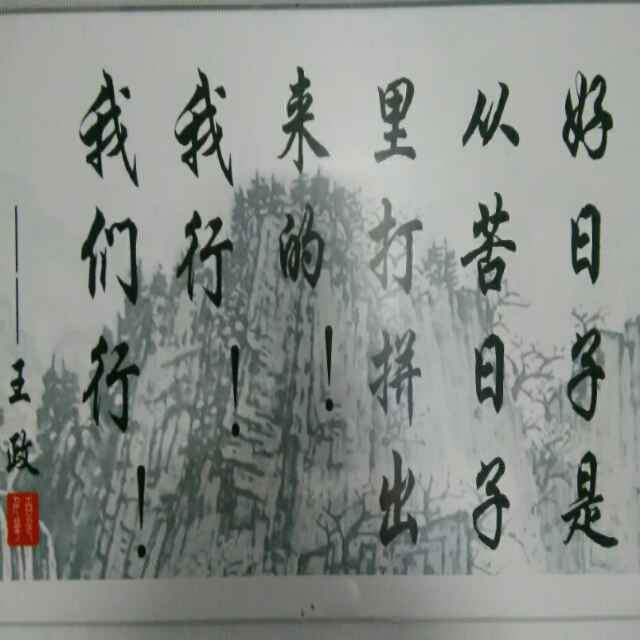 好日子是
从苦日子
里打拼出
来的！
我行！
我们行！
——王政